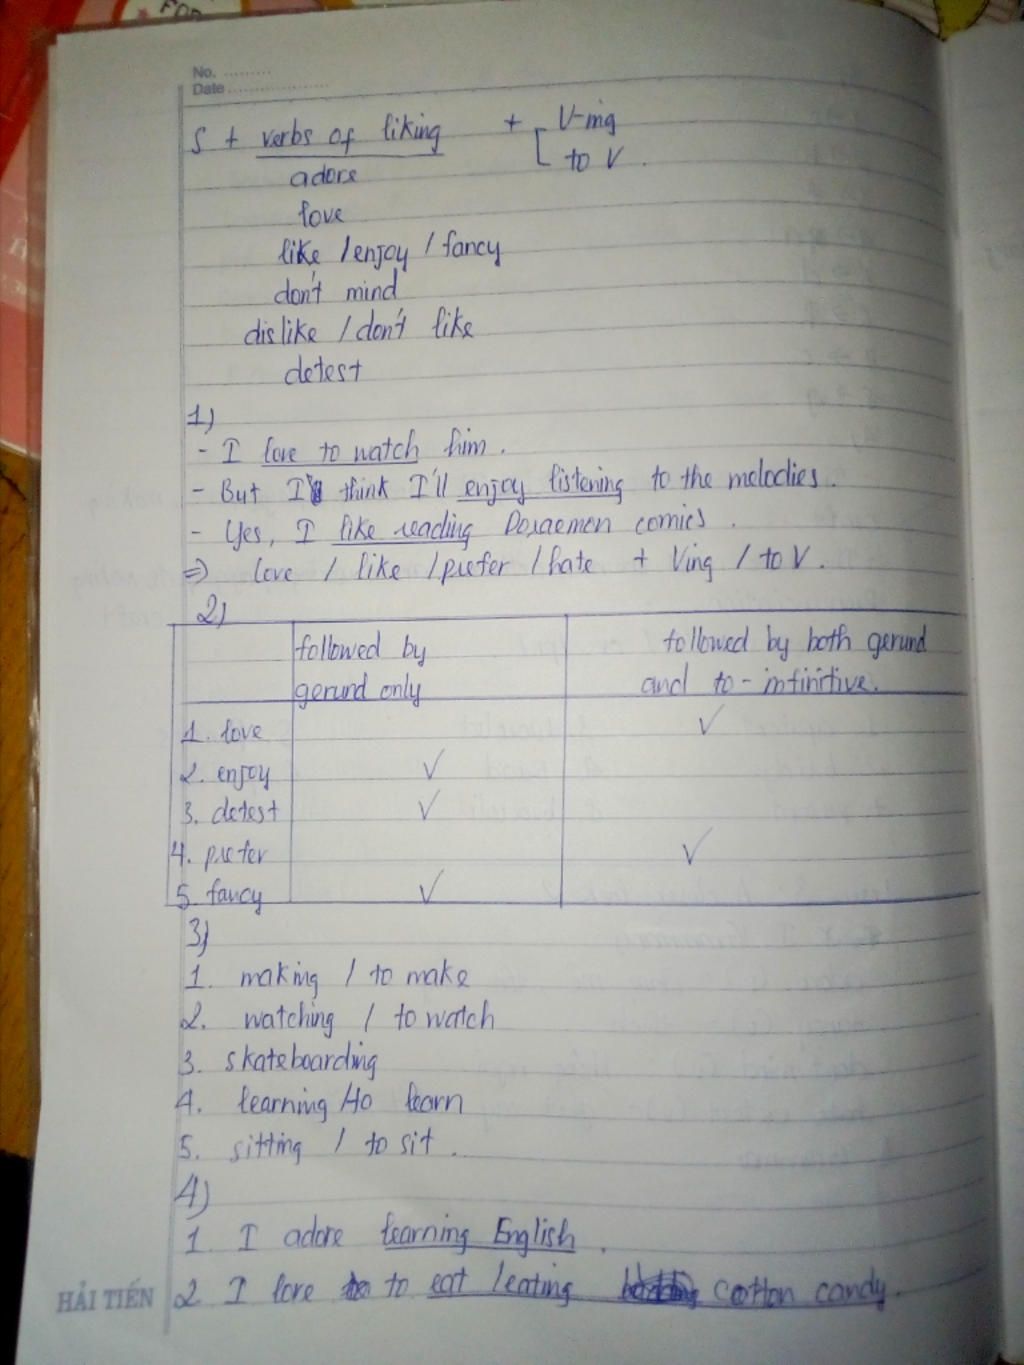 FOR
No. ..........
Date ....................
S + verbs of liking + V-ing
to V.
adore
love
like / enjoy / fancy
don't mind
dislike / don't like
detest
1)
- I love to watch him.
- But I think I'll enjoy listening to the melodies.
- Yes, I like reading Doraemon comics.
=> love / like / prefer / hate + Ving / to V.
2)
followed by followed by both gerund
gerund only and to - infinitive.
1. love ✓
2. enjoy ✓
3. detest ✓
4. prefer ✓
5. fancy ✓
3)
1. making / to make
2. watching / to watch
3. skateboarding
4. learning / to learn
5. sitting / to sit.
4)
1. I adore learning English.
HẢI TIẾN 2 I love to eat / eating cotton candy.